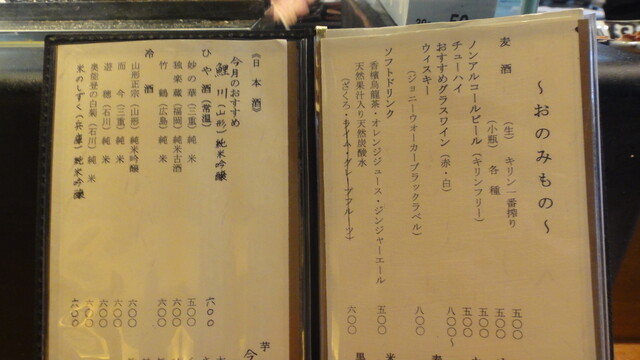 ～おのみもの～
麦酒
(生) キリン一番搾り 五〇〇
(小瓶) 各種 五〇〇
ノンアルコールビール (キリンフリー) 五〇〇
チューハイ 五〇〇
おすすめグラスワイン (赤・白) 八〇〇～
ウィスキー
(ジョニーウォーカーブラックラベル) 八〇〇
ソフトドリンク
香檳烏龍茶・オレンジジュース・ジンジャーエール 五〇〇
天然果汁入り天然炭酸水
(ざくろ・ライム・グレープフルーツ) 六〇〇
《日本酒》
今月のおすすめ
鯉川 (山形) 純米吟醸 六〇〇
ひや酒 (常温)
妙の華 (三重) 純米 五〇〇
独楽蔵 (福岡) 純米古酒 六〇〇
竹鶴 (広島) 純米 五〇〇
冷酒
山形正宗 (山形) 純米吟醸 六〇〇
而今 (三重) 純米 六〇〇
遊穂 (石川) 純米 六〇〇
奥能登の白菊 (石川) 純米 六〇〇
米のしずく (兵庫) 純米吟醸 六〇〇
芋
今
米
黒